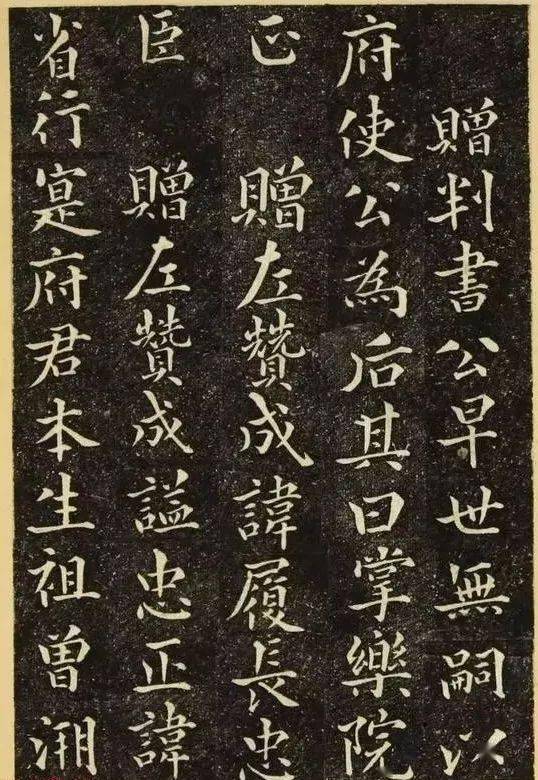 贈判書公早世無嗣以
府使公為后其曰掌樂院
正 贈左贊成諱履長忠
臣 贈左贊成謚忠正諱
省行寔府君本生祖曾湖